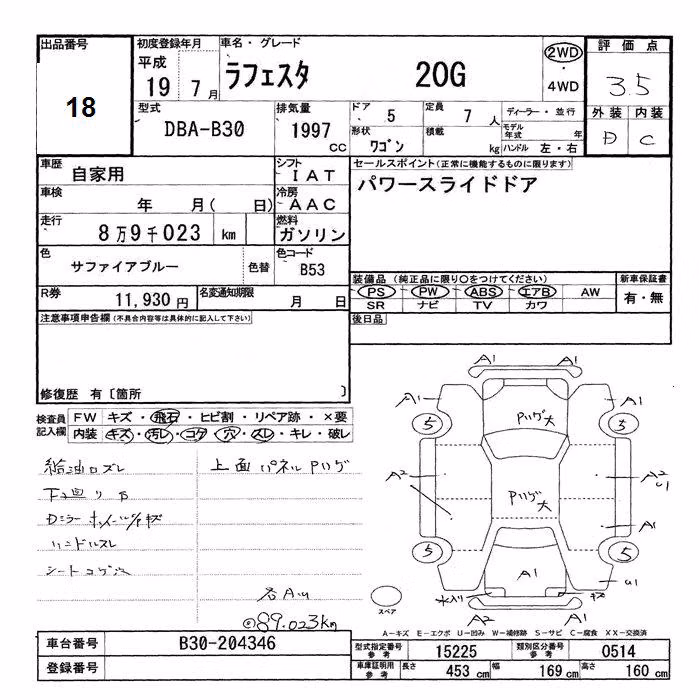 出品番号
18
初度登録年月
平成
19 7月
車名・グレード
ラフェスタ 20G
2WD
・
4WD
評価点
3.5
外装 内装
D C
型式
DBA-B30
排気量
1997 cc
ドア 5
定員 7 人
ディーラー・並行
形状 ワゴン
積載 kg
モデル年式 年
ハンドル 左・右
車歴
自家用
シフト
IAT
車検
年 月( 日)
冷房
AAC
走行
8万9千023 km
燃料
ガソリン
色
サファイアブルー
色替
色コード
B53
R券
11,930円
名変通知期限
月 日
セールスポイント(正常に機能するものに限ります)
パワースライドドア
装備品 (純正品に限り○をつけてください)
新車保証書
PS PW ABS エアB AW
SR ナビ TV カワ
有・無
後日品
注意事項申告欄(不具合内容等は具体的に記入して下さい)
修復歴 有〔箇所 〕
検査員記入欄
FW キズ・飛石・ヒビ割・リペア跡・×要
内装 キズ・汚レ・コゲ・穴・スレ・キレ・破レ
給油口スレ
上面パネルPハゲ
下廻りサビ
ハンドルスレ
シートコゲ穴
各AU
89.023km
A1 A1
A1 A1
5 5
Pハゲ大
A2 A2
U1
Pハゲ大
A1
5 5
A1
U1
水入り キズ
A2 A1
スペア
A-キズ E-エクボ U-凹み W-補修跡 S-サビ C-腐食 XX-交換済
車台番号
B30-204346
登録番号
型式指定番号 参考
15225
類別区分番号 参考
0514
車庫証明用 参考
長さ 453 cm
幅 169 cm
高さ 160 cm